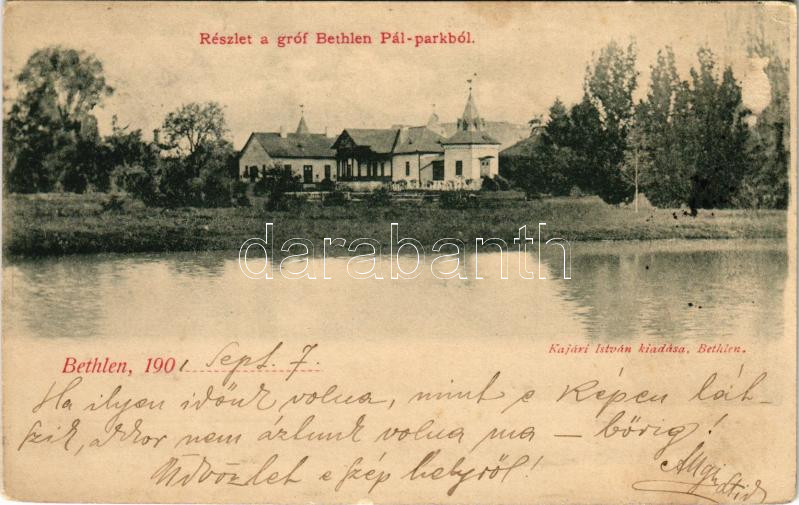 Részlet a gróf Bethlen Pál-parkból.
darabanth
Bethlen, 1901 Sept. 7.
Kajári István kiadása, Bethlen.
Ha ilyen időnk volna, mint e képen lát-
szik, akkor nem áztunk volna ma — bőrig!
Üdvözlet e szép helyről!